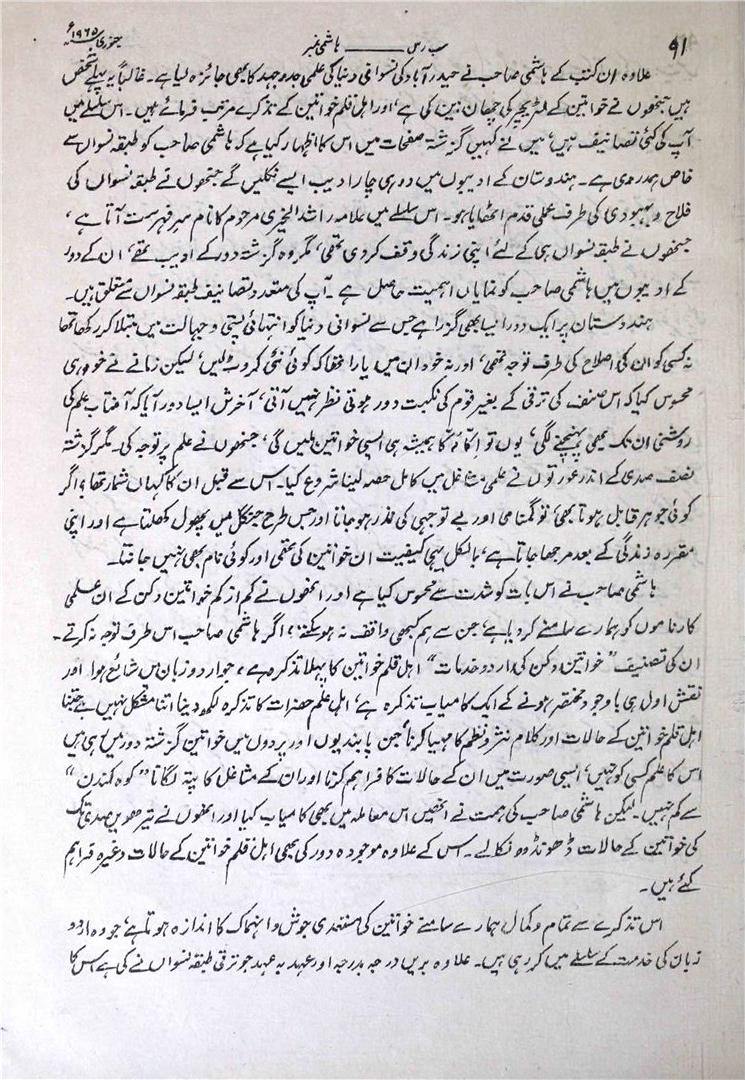 ۹۱ سب رس ــــــــ ہاشمی نمبر جنوری ۱۹۶۵ء
علاوہ ان کتب کے ہاشمی صاحب نے حیدرآباد کی نسوانی دنیا کی علمی جدوجہد کا بھی جائزہ لیا ہے۔ غالباً یہ پہلے شخص
ہیں جنھوں نے خواتین کے لٹریچر کی چھان بین کی ہے، اور اہل قلم خواتین کے تذکرے مرتب فرمائے ہیں۔ اس سلسلے میں
آپ کی کئی تصانیف ہیں، میں نے کہیں گزشتہ صفحات میں اس کا اظہار کیا ہے کہ ہاشمی صاحب کو طبقہ نسواں سے
خاص ہمدردی ہے۔ ہندوستان کے ادیبوں میں دو ہی چار ادیب ایسے نکلیں گے جنھوں نے طبقہ نسواں کی
فلاح و بہبودی کی طرف عملی قدم اٹھایا ہو۔ اس سلسلے میں علامہ راشد الخیری مرحوم کا نام سر فہرست آتا ہے،
جنھوں نے طبقہ نسواں ہی کے لئے اپنی زندگی وقف کر دی تھی، مگر وہ گزشتہ دور کے ادیب تھے، ان کے دور
کے ادیبوں میں ہاشمی صاحب کو نمایاں اہمیت حاصل ہے۔ آپ کی متعدد تصانیف طبقہ نسواں سے متعلق ہیں۔
ہندوستان پر ایک دور ایسا بھی گزرا ہے جس سے نسوانی دنیا کو انتہائی پستی و جہالت میں مبتلا کر رکھا تھا
نہ کسی کو ان کی اصلاح کی طرف توجہ تھی، اور نہ خود ان میں یارا تھا کہ کوئی نئی کروٹ لیں، لیکن زمانے نے خود ہی
محسوس کیا کہ اس صنف کی ترقی کے بغیر قوم کی نکبت دور ہوتی نظر نہیں آتی، آخرش ایسا دور آیا کہ آفتاب علم کی
روشنی ان تک بھی پہنچنے لگی، یوں تو اکا دکا ہمیشہ ہی ایسی خواتین ملیں گی، جنھوں نے علم پر توجہ کی۔ مگر گذشتہ
نصف صدی کے اندر عورتوں نے علمی مشاغل میں کامل حصہ لینا شروع کیا۔ اس سے قبل ان کا کہاں شمار تھا؟ اگر
کوئی جوہر قابل ہوتا بھی، تو گمنامی اور بے توجہی کی نذر ہو جاتا اور جس طرح جنگل میں پھول کھلتا ہے اور اپنی
مقررہ زندگی کے بعد مرجھا جاتا ہے، بالکل یہی کیفیت ان خواتین کی تھی اور کوئی نام بھی نہیں جانتا۔
ہاشمی صاحب نے اس بات کو شدت سے محسوس کیا ہے اور انھوں نے کم از کم خواتین دکن کے ان علمی
کارناموں کو ہمارے سامنے کر دیا ہے، جن سے ہم کبھی واقف نہ ہو سکتے، اگر ہاشمی صاحب اس طرف توجہ نہ کرتے۔
ان کی تصنیف ”خواتین دکن کی اردو خدمات“ اہل قلم خواتین کا پہلا تذکرہ ہے، جو اردو زبان میں شائع ہوا اور
نقش اول ہی باوجود مختصر ہونے کے ایک کامیاب تذکرہ ہے، اہل علم حضرات کا تذکرہ لکھ دینا اتنا مشکل نہیں ہے جتنا
اہل قلم خواتین کے حالات اور کلام نثر و نظم کا مہیا کرنا، جن پابندیوں اور پردوں میں خواتین گزشتہ دور میں رہی ہیں
اس کا علم کسی کو نہیں، ایسی صورت میں ان کے حالات کا فراہم کرنا اور ان کے مشاغل کا پتہ لگانا ”کوہ کندن“
سے کم نہیں۔ لیکن ہاشمی صاحب کی ہمت نے انھیں اس معاملہ میں بھی کامیاب کیا اور انھوں نے تیرھویں صدی تک
کی خواتین کے حالات ڈھونڈھ نکالے۔ اس کے علاوہ موجودہ دور کی بھی اہل قلم خواتین کے حالات وغیرہ فراہم
کئے ہیں۔
اس تذکرے سے تمام و کمال ہمارے سامنے خواتین کی مستعدی جوش و انہماک کا اندازہ ہوتا ہے، جو وہ اردو
زبان کی خدمت کے سلسلے میں کر رہی ہیں۔ علاوہ بریں درجہ بدرجہ اور عہد بہ عہد جو ترقی طبقہ نسواں نے کی ہے اس کا